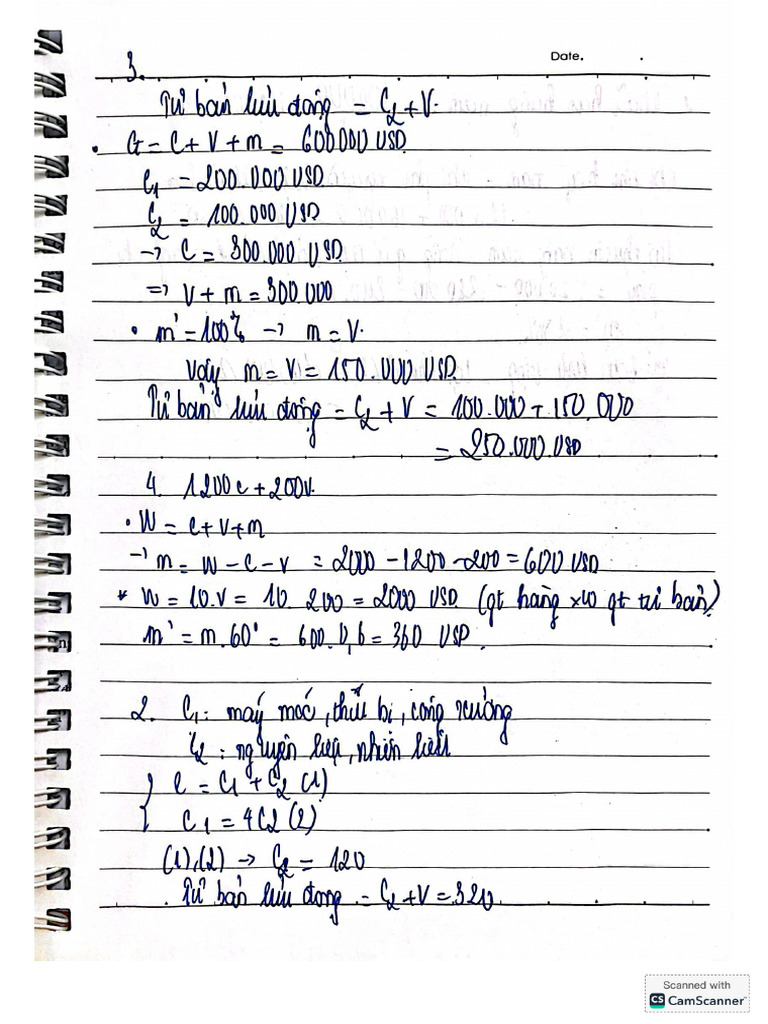 Date. .
3.
Tư bản lưu động = C2 + V.
• G = C + V + m = 600000 USD
C1 = 200.000 USD
C2 = 100.000 USD
→ C = 300.000 USD
=> V + m = 300 000
• m' = 100% → m = V.
Vậy m = V = 150.000 USD
Tư bản lưu động = C2 + V = 100.000 + 150.000
= 250.000 USD
4. 1200c + 200v.
• W = C + V + m
→ m = W - C - V = 2000 - 1200 - 200 = 600 USD
* W = 10.V = 10. 200 = 2000 USD (gt hàng x10 gt tư bản)
m' = m.60' = 600.0,6 = 360 USD.
2. C1: máy móc, thiết bị, công xưởng
C2: nguyên liệu, nhiên liệu
{ C = C1 + C2 (1)
C1 = 4C2 (2)
(1),(2) → C2 = 120
. Tư bản lưu động = C2 + V = 320
Scanned with
CS CamScanner